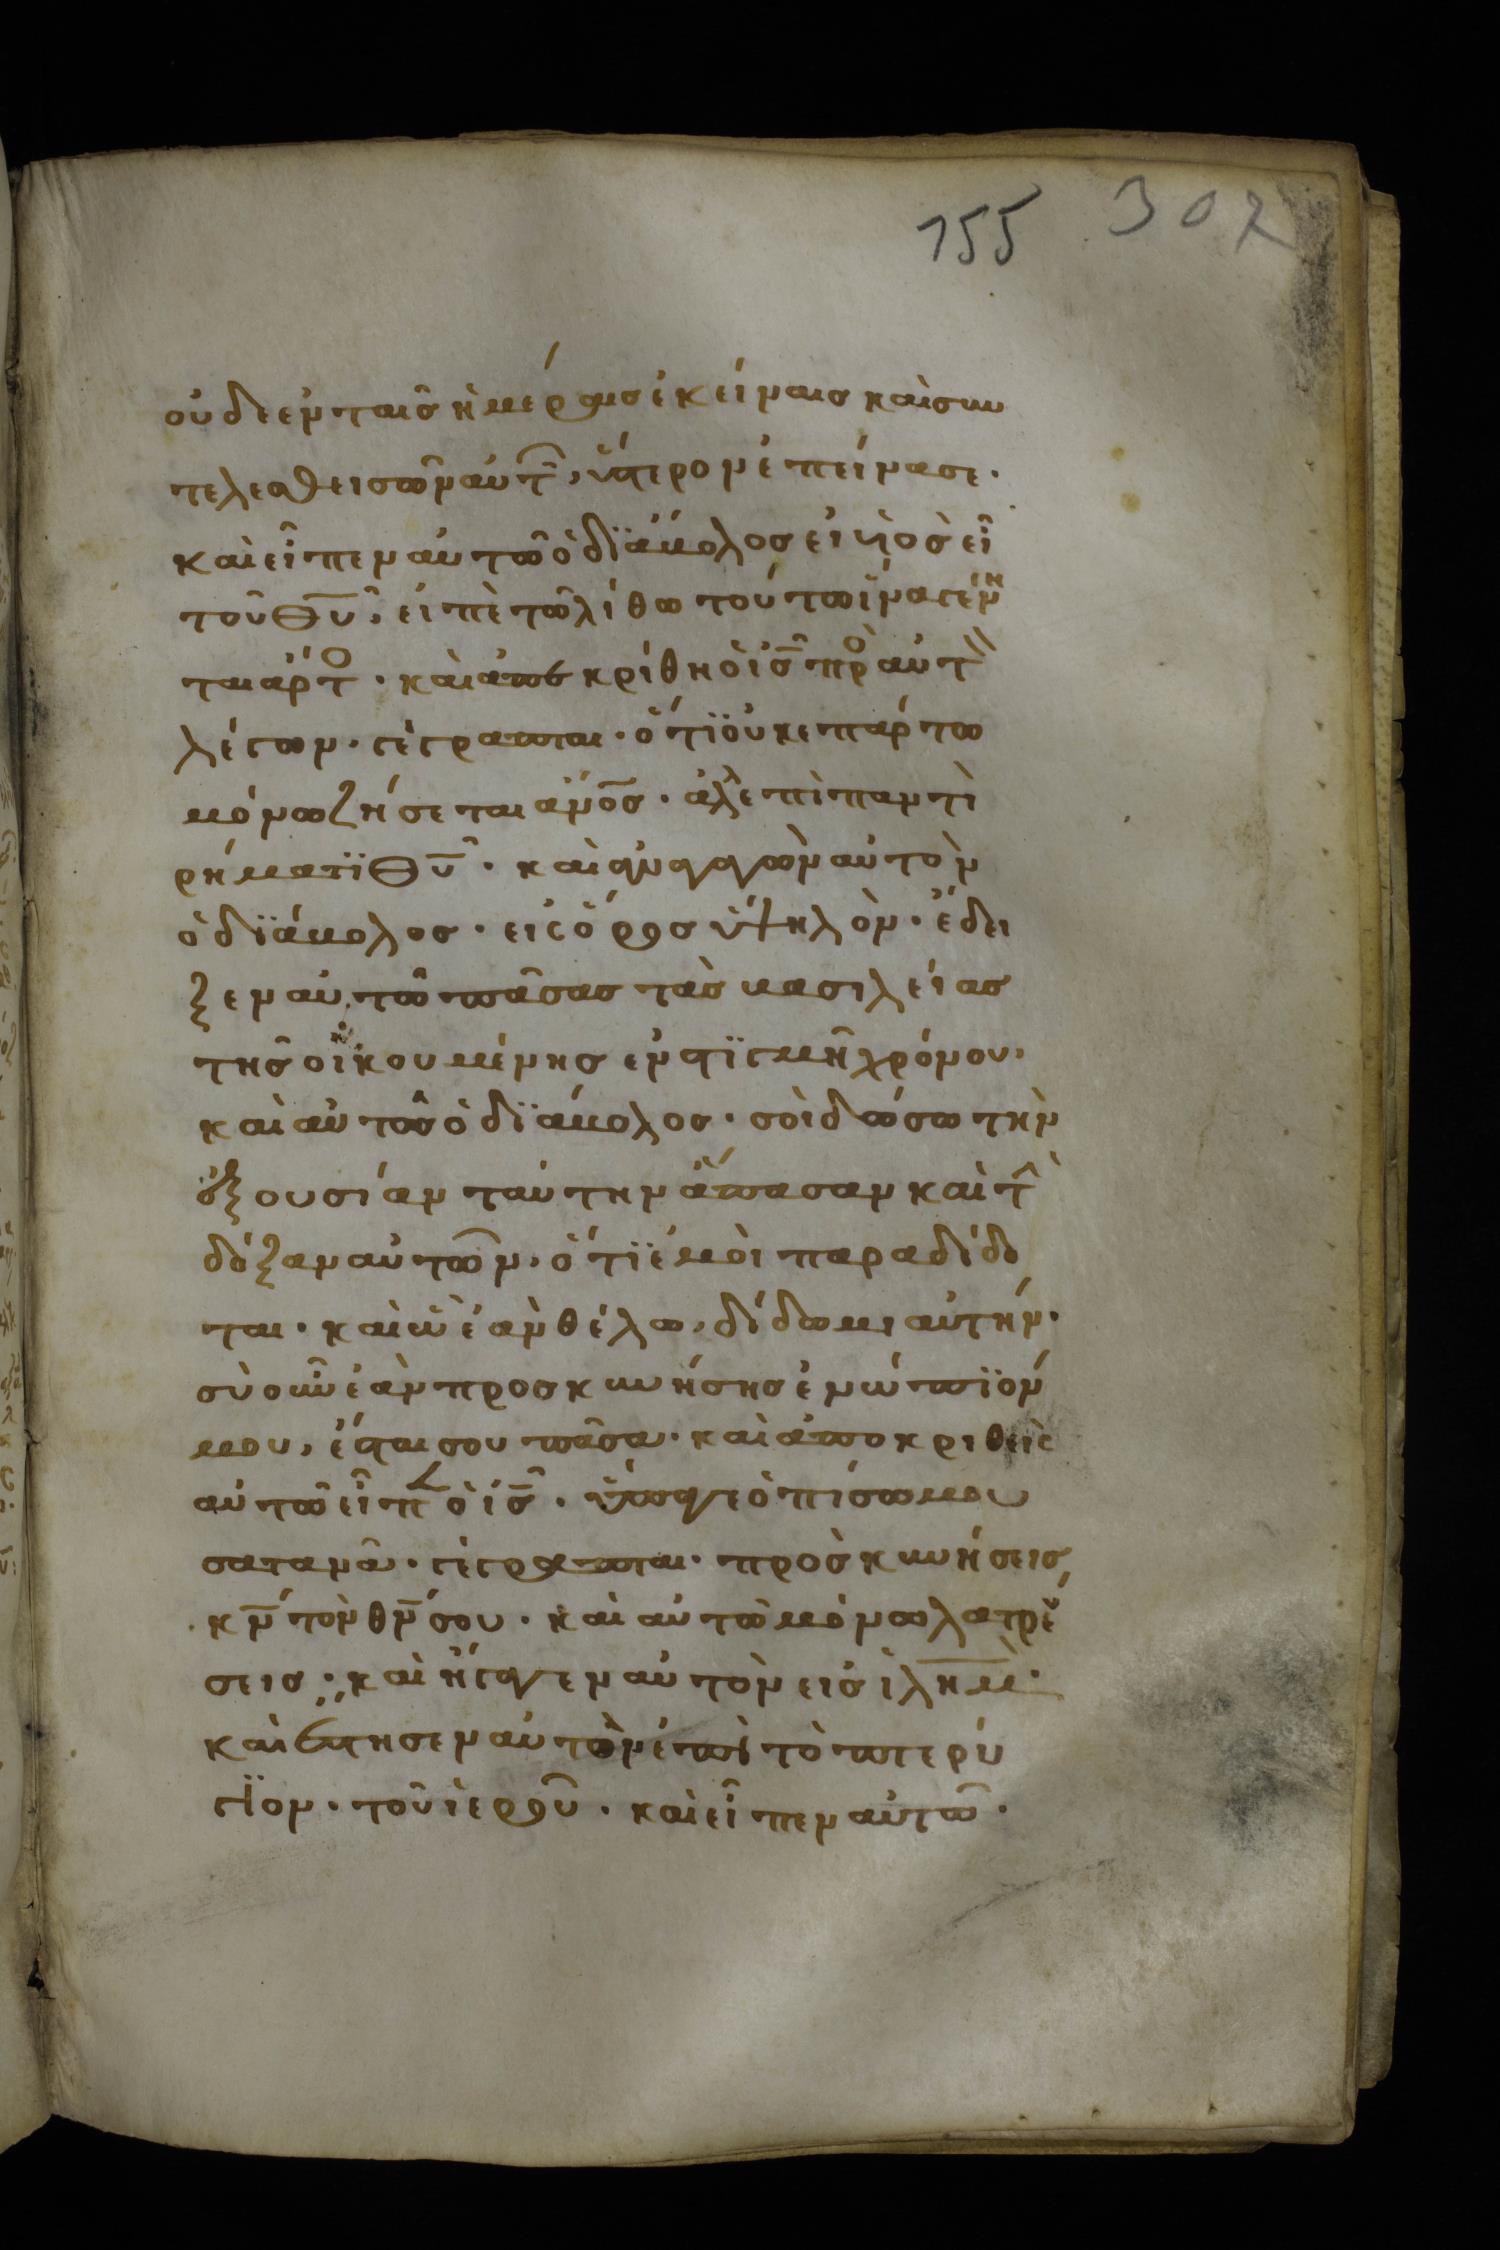 155 302
οὐδὲ ἐν ταῖς ἡμέραις ἐκείναις καὶ συν
τελεσθεισῶν αὐτ̑, ὕστερον ἐπείνασε·
καὶ εἶπεν αὐτῶ ὁ διάβολος εἰ υἱὸς εἶ
τοῦ θῦ, εἰπὲ τῶ λίθω τούτω ἵνα γένη
ται ἄρτο· καὶ ἀπεκρίθη ὁ ἰς̅ πρὸ αὐτὸ
λέγων· γέγραπται· ὅτι οὐκ επ ἄρτω
μόνω ζήσεται ἄνος· ἀλλ ἐπὶ παντὶ
ρήματι θῦ· καὶ ἀναγαγὼν αὐτὸν
ὁ διάβολος· εἰς ὄρος ὑψηλὸν· ἔδει
ξεν αὐτῶ πάσας τὰς βασιλείας
τῆς οἰκουμένης ἐν στιγμῆ χρόνου,
καὶ αὐτῶ ὁ διάβολος· σοὶ δώσω τὴν
ἐξουσίαν ταύτην ἅπασαν καὶ τ̑
δόξαν αὐτῶν, ὅτι ἐμοὶ παραδέδο
ται· καὶ ὧ ἐὰν θέλω, δίδωμι αὐτήν·
σὺ οὖν ἐὰν προσκυνήσης ἐνώπιόν
μου, ἔσται σου πᾶσα· καὶ ἀποκριθεὶς
αὐτῶ εἶπ ὁ ἰς̅· ὕπαγε ὀπίσω μου
σατανᾶ· γέγραπται· προσκυνήσεις
κν̅ τὸν θν̅ σου· καὶ αὐτῶ μόνω λατρεύ
σεις· καὶ ἤγαγεν αὐτὸν εἰς ἱλημ̅·
καὶ ἔστησεν αὐτὸν ἐπὶ τὸ πτερύ
γιον· τοῦ ἱεροῦ· καὶ εἶπεν αὐτῶ·